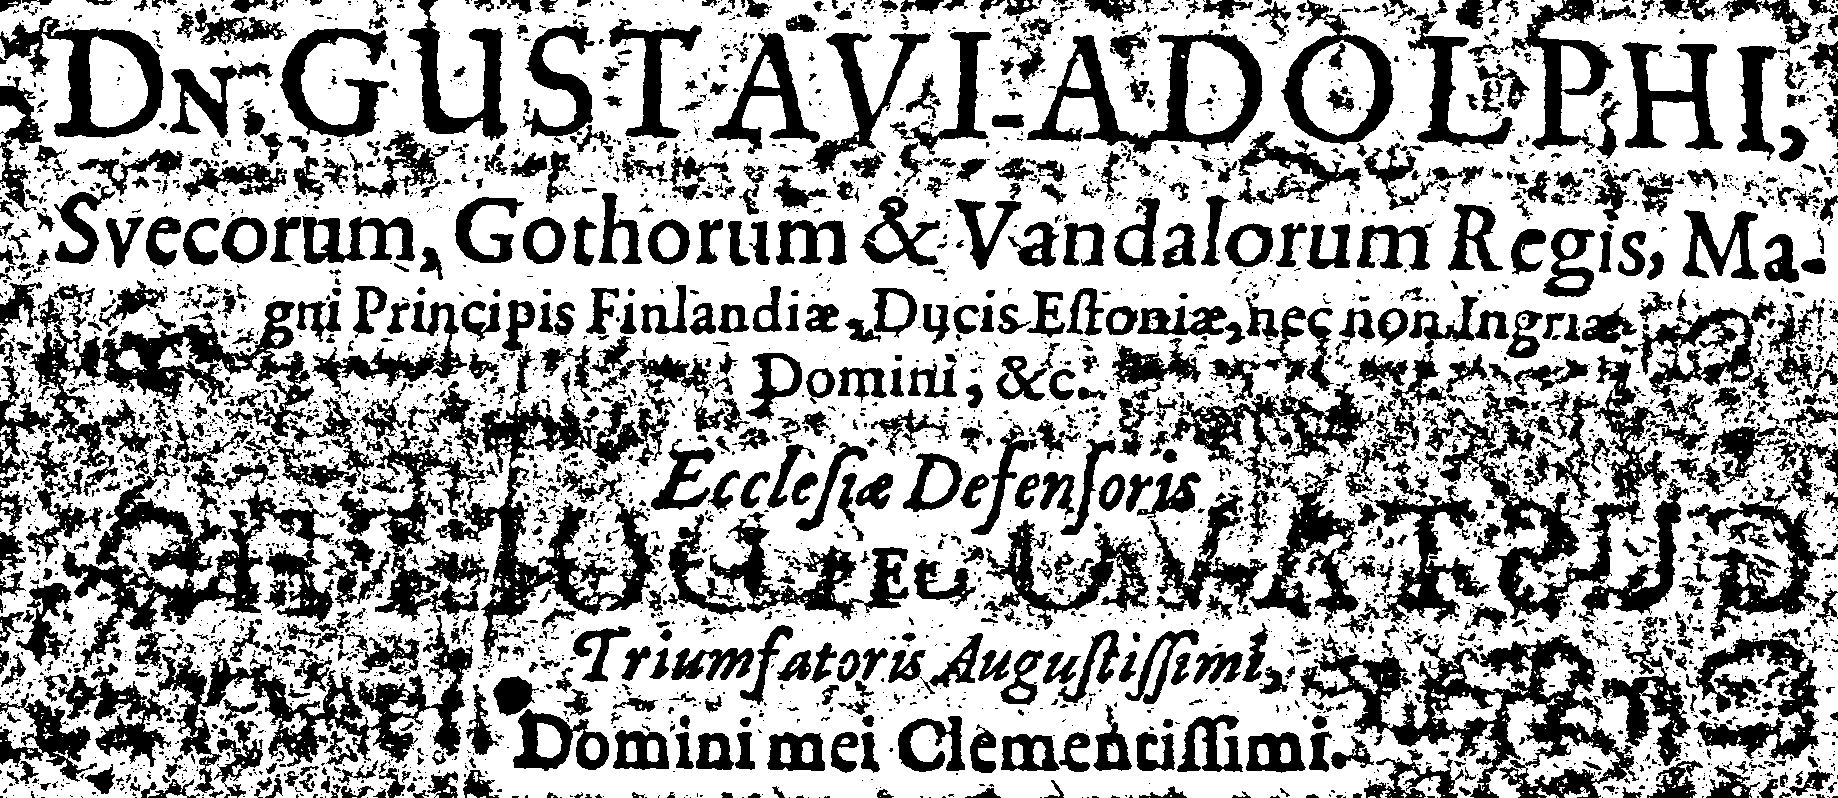 DN. GUSTAVI-ADOLPHI,
Svecorum, Gothorum & Vandalorum Regis, Ma-
gni Principis Finlandiæ, Ducis Eſtoniæ, nec non Ingriæ
Domini, &c.
Eccleſiæ Defenſoris
ET
Triumfatoris Auguſtiſſimi,
Domini mei Clementiſſimi.